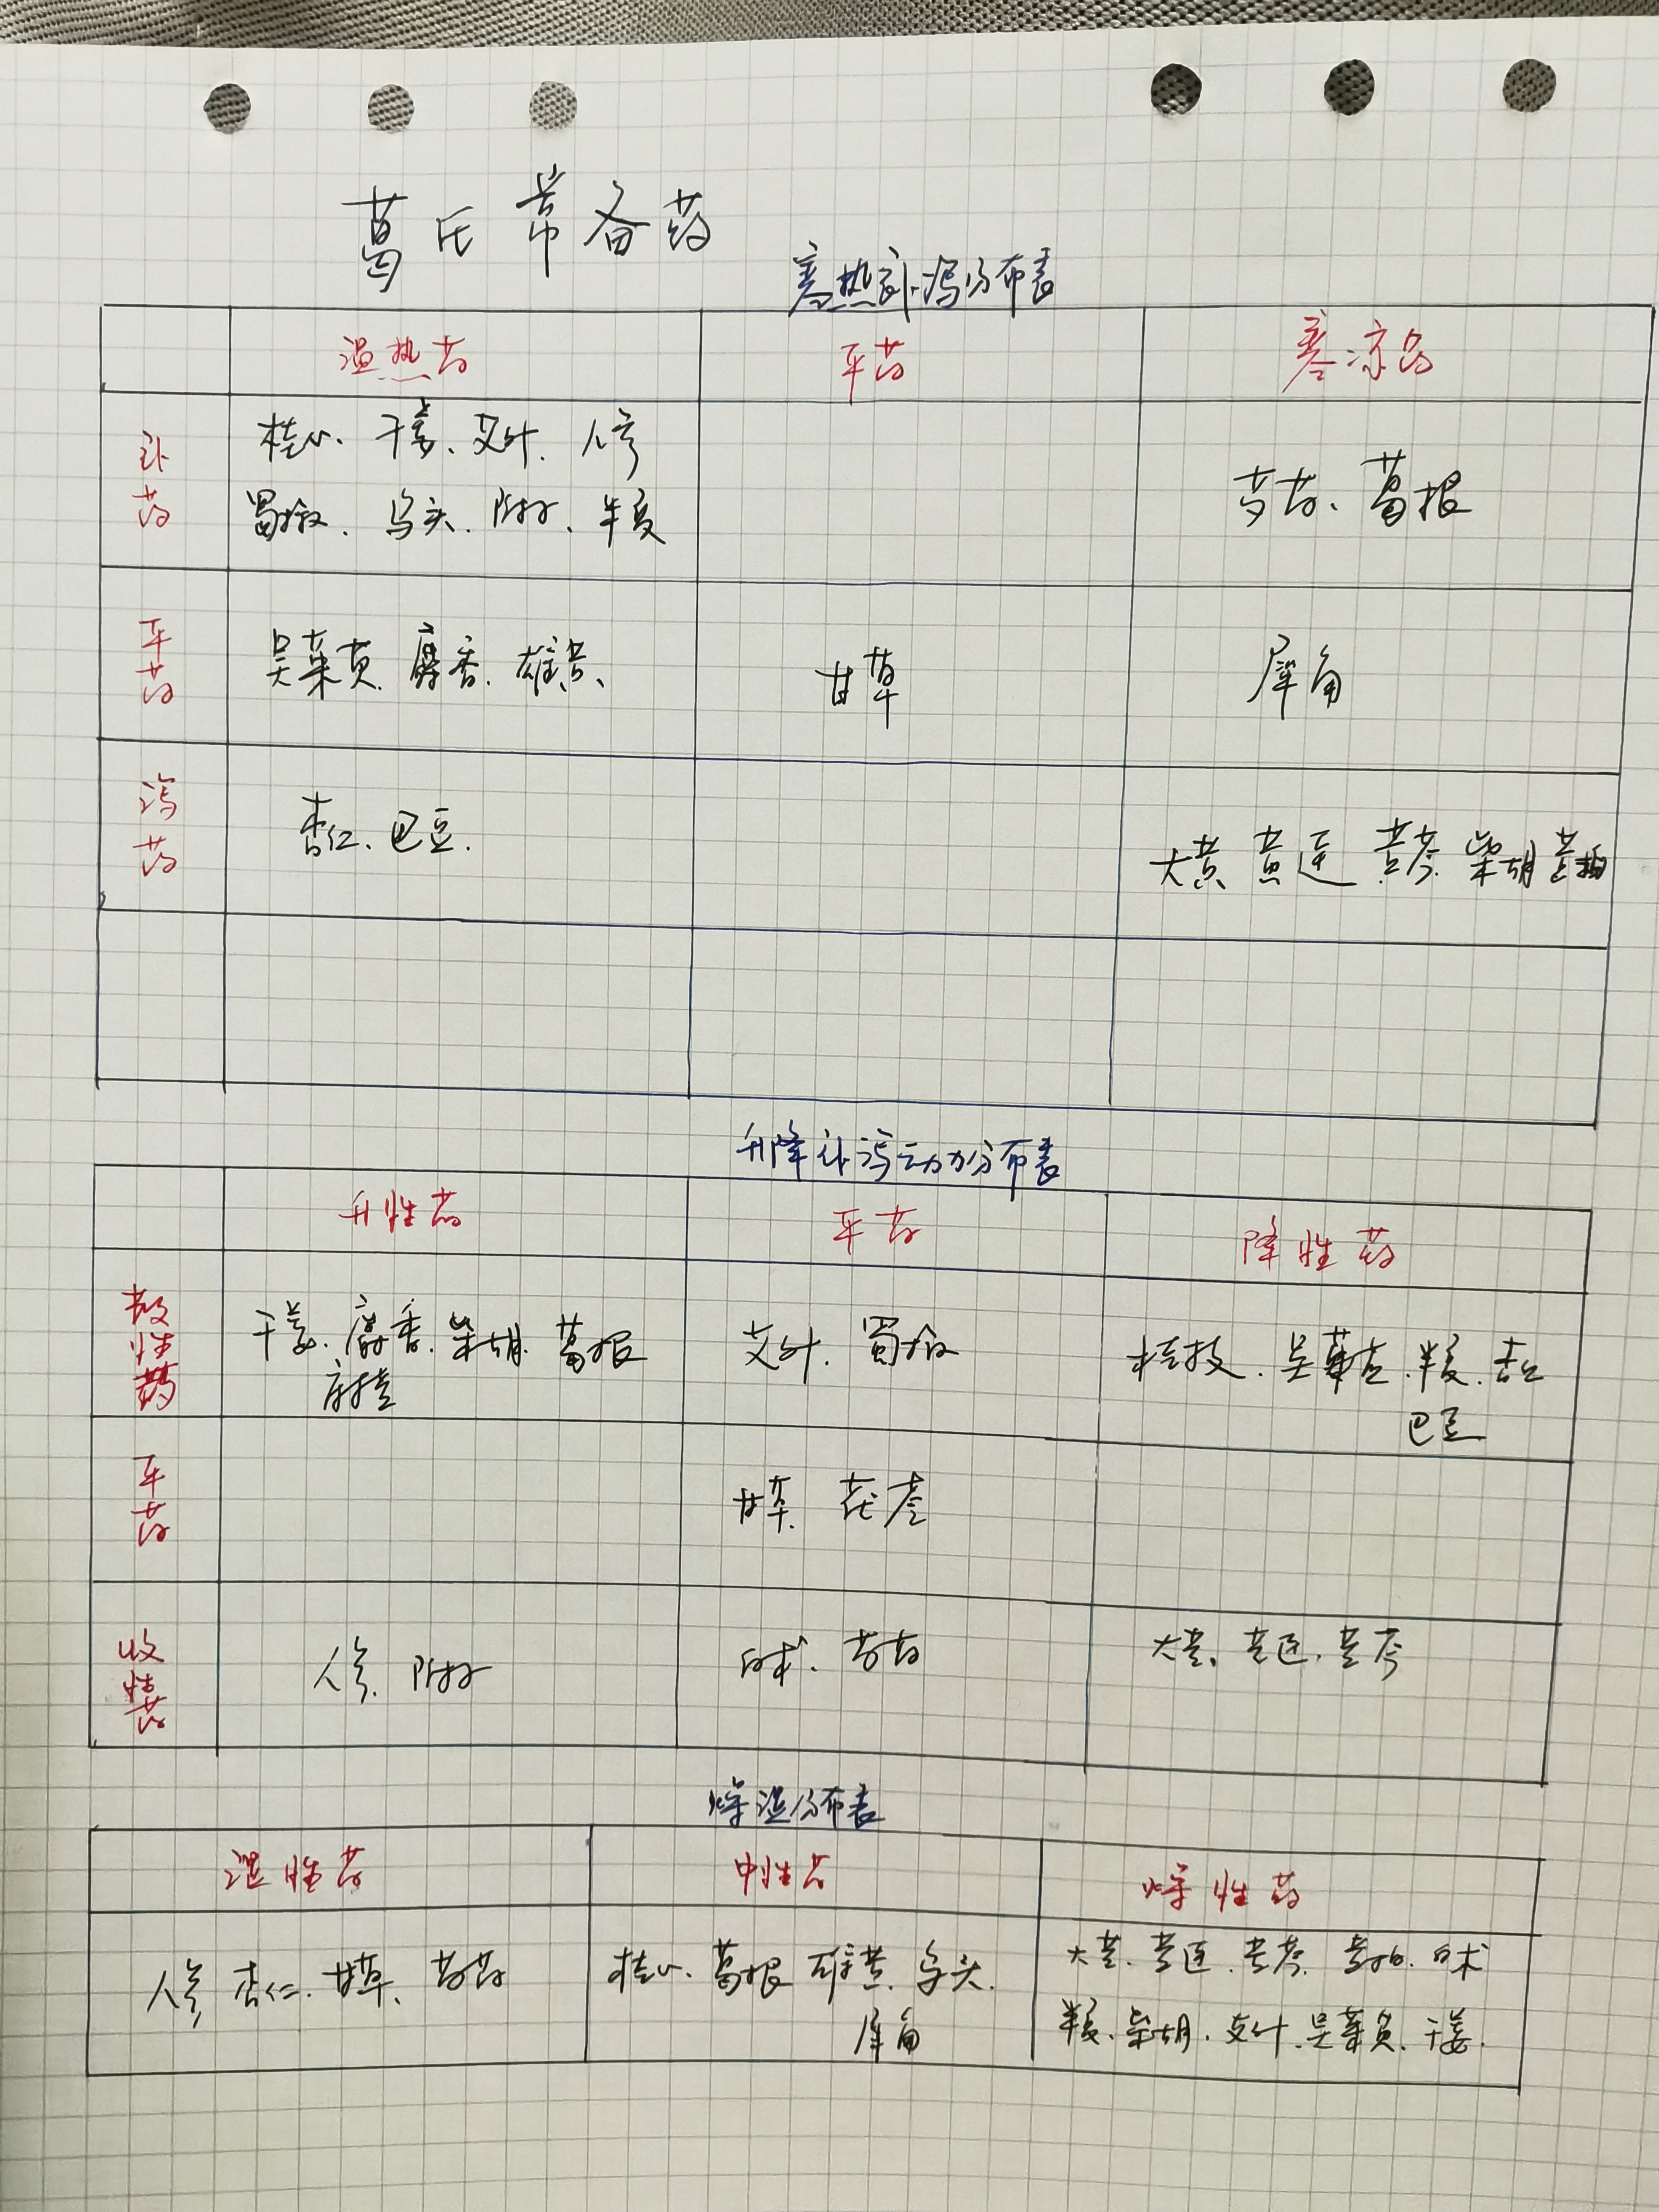 葛氏常备药
寒热补泻分布表
温热药 平药 寒凉药
补药 桂心、干姜、艾叶、人参 芍药、葛根
蜀椒、乌头、附子、半夏
平药 吴茱萸、麝香、雄黄、 甘草 犀角
泻药 杏仁、巴豆、 大黄 黄连 黄芩 柴胡 黄柏
升降补泻动力分布表
升性药 平药 降性药
散性药 干姜、麝香、柴胡、葛根 艾叶、蜀椒 桂枝、吴茱萸、半夏、杏仁
麻黄 巴豆
平药 甘草、茯苓
收性药 人参、附子 白术、芍药 大黄、黄连、黄芩
燥湿分布表
湿性药 中性药 燥性药
人参 杏仁、甘草、芍药 桂心、葛根 雄黄、乌头、 大黄、黄连、黄芩、黄柏、白术
犀角 半夏、柴胡、艾叶、吴茱萸、干姜、